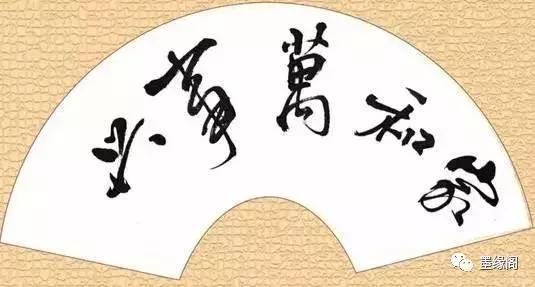 家和萬事兴
墨缘阁